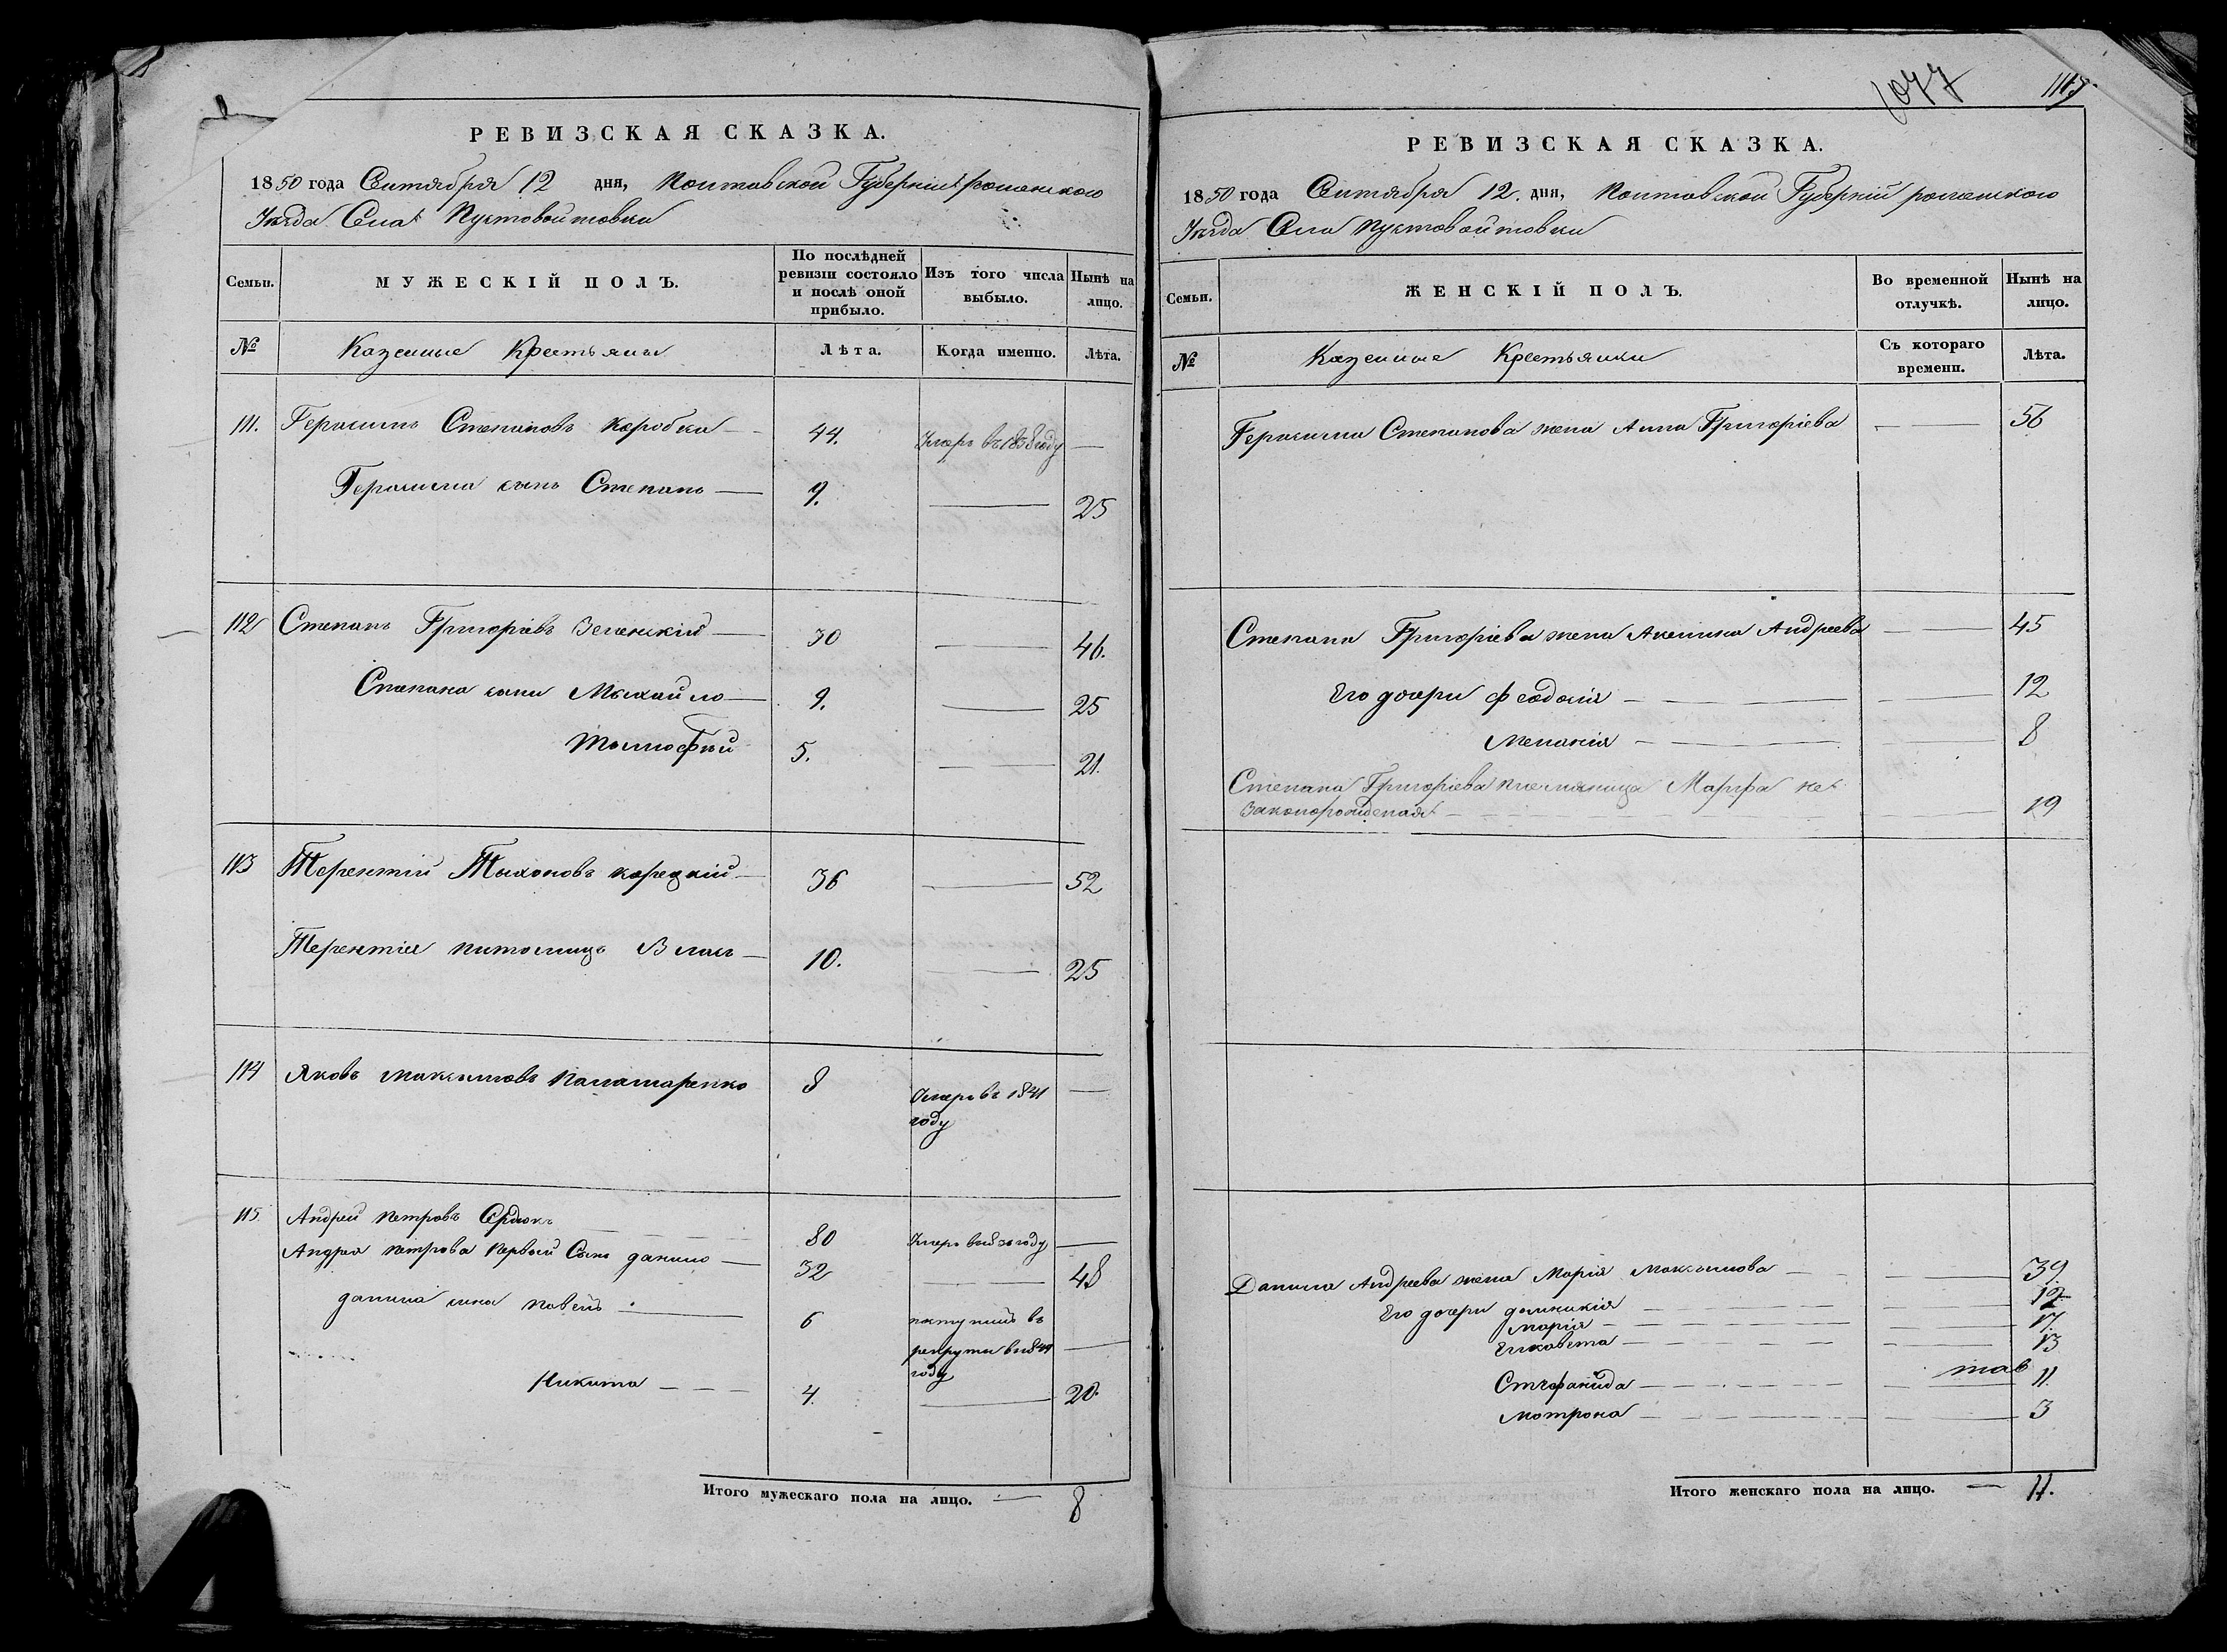 РЕВИЗСКАЯ СКАЗКА.
1850 года Сентября 12 дня, Полтавской Губерніи роменского
Уѣзда Села Пустовойтовки
Семьи. МУЖЕСКІЙ ПОЛЪ. По послѣдней ревизіи состояло и послѣ оной прибыло. Изъ того числа выбыло. Нынѣ на лицо.
№ Казенные Крестьяны Лѣта. Когда именно. Лѣта.
111. Герасимъ Степановъ Коробка — 44. Умеръ въ 1838 году —
Герасима сынъ Степанъ — 9. — 25
112 Степанъ Григоріевъ Зеленскій — 30 — 46.
Степана сыни Мыхайло — 9. — 25
Тымофѣй 5. — 21.
113 Терентій Тыхоновъ корецкій — 36 — 52
Терентія питомицъ Власъ — 10. — 25
114 Яковъ Максымовъ Паламаренко 8 Умеръ въ 1841 —
году
115. Андрей Петровъ Сердюкъ 80 Умеръ году —
Андрея Петрова первый Сынъ данило — 32 — 48
данила сына Павелъ — 6 поступилъ въ
рекруты —
году
Никита — — — 4. — 20
Итого мужескаго пола на лицо. — 8
1077 117
РЕВИЗСКАЯ СКАЗКА.
1850 года Сентября 12. дня, Полтавской Губерніи роменского
Уѣзда Села Пустовойтовки
Семьи. ЖЕНСКІЙ ПОЛЪ. Во временной отлучкѣ. Нынѣ на лицо.
№ Казенные Крестьянки Съ котораго времени. Лѣта.
Герасима Степанова жена Анна Григоріева — 56
Степана Григоріева жена Акелина Андреева — 45
Его дочери феодосія — 12
Меланія — 8
Степана Григоріева племяница Марфа не
законорожденая — 19
Данила Андреева жена Марія Максымова — 39
Его дочери домникія —
Марія — 17.
Елисавета — 13
Стефанида — 11.
Мотрона — 3
Итого женскаго пола на лицо. — 11.